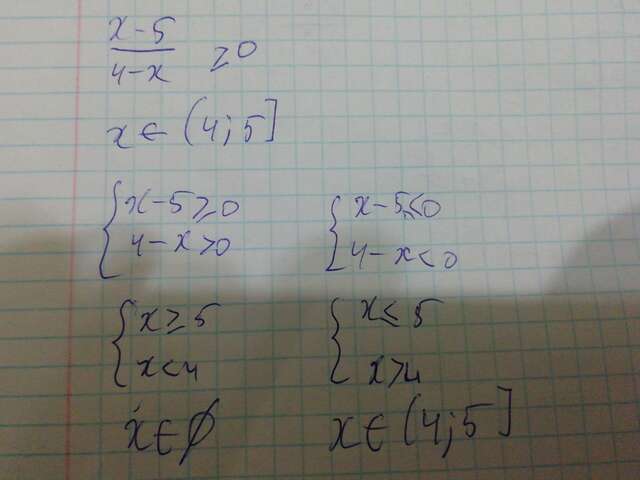 x-5
4-x ≥0
x∈(4;5]
{x-5≥0 {x-5≤0
4-x>0 4-x<0
{x≥5 {x≤5
x<4 x>4
x∈∅ x∈(4;5]